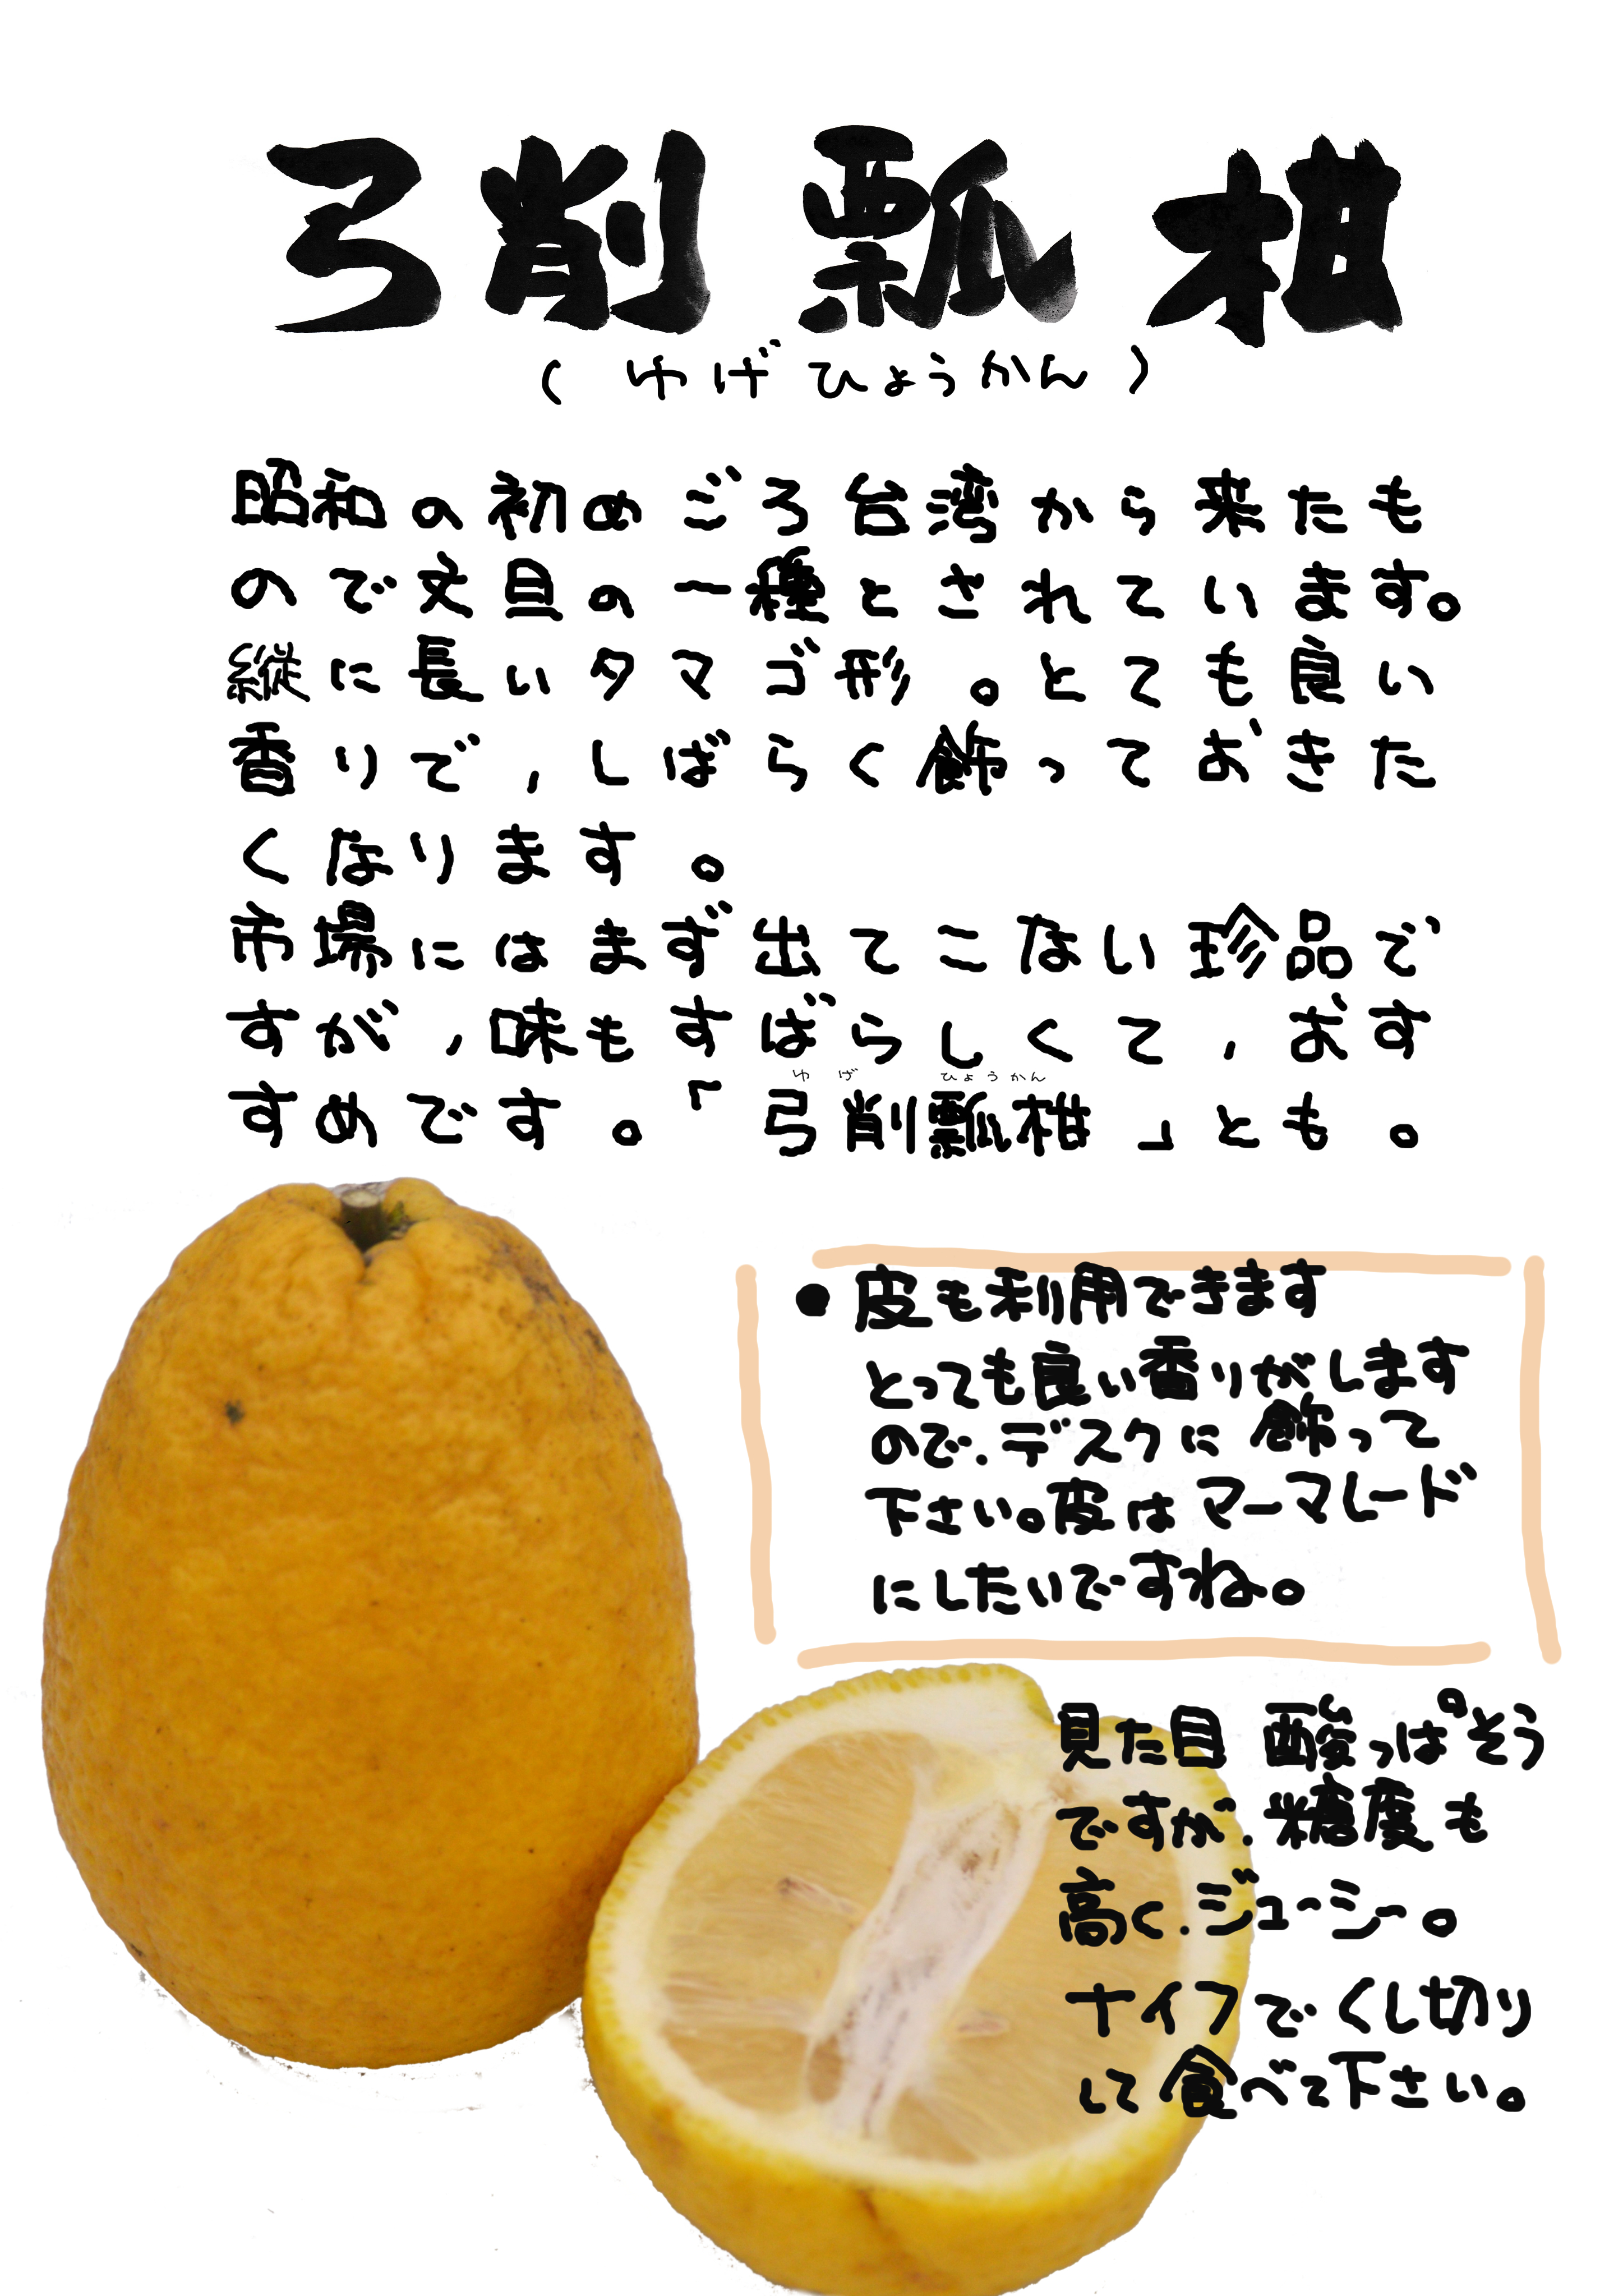 弓削瓢柑
（ゆげひょうかん）
昭和の初めごろ台湾から来たも
ので文旦の一種とされています。
縦に長いタマゴ形。とても良い
香りで，しばらく飾っておきた
くなります。
市場にはまず出てこない珍品で
すが，味もすばらしくて，おす
ゆげ ひょうかん
すめです。「弓削瓢柑」とも。
●皮も利用できます
とっても良い香りがします
ので．デスクに飾って
下さい。皮はマーマレード
にしたいですね。
見た目 酸っぱそう
ですが．糖度も
高く．ジューシー。
ナイフでくし切り
して食べて下さい。